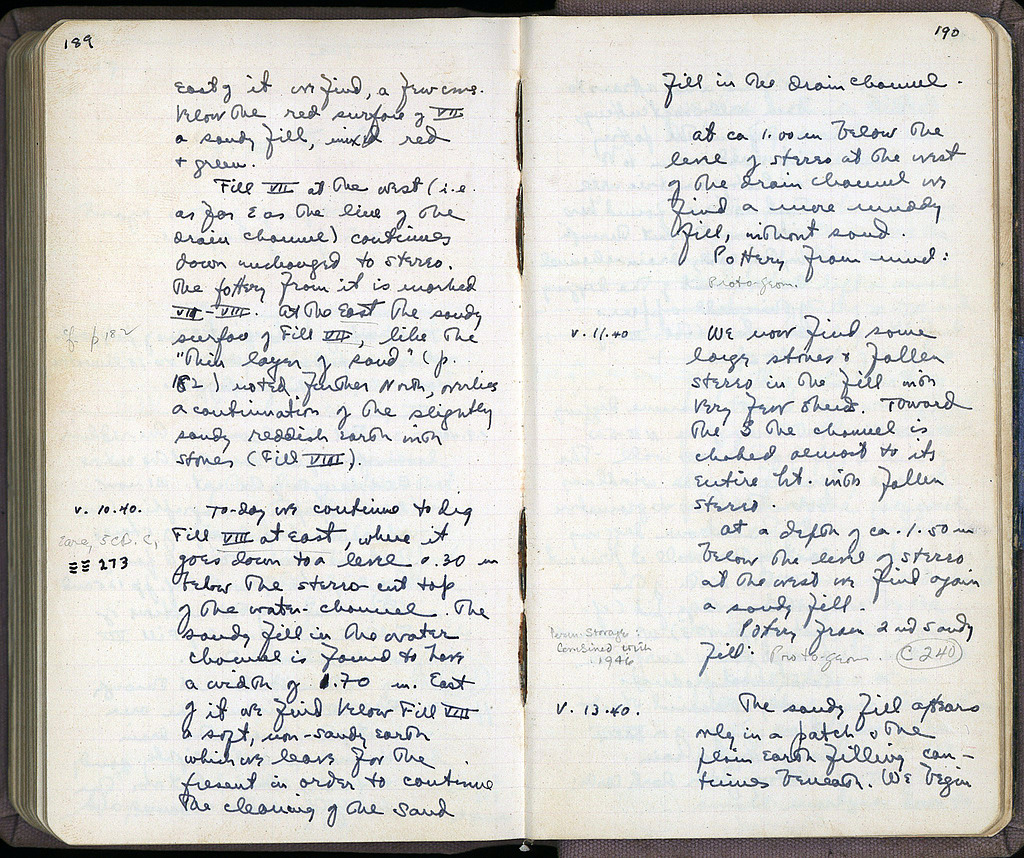 189
East of it we find, a few cms.
below the red surface of VII
a sandy fill, mixed red
+ green.
Fill VII at the west (i.e.
as far E as the line of the
drain channel) continues
down unchanged to stereo.
The pottery from it is marked
VII-VIII. At the East the sandy
surface of Fill VII, like the
cf. p 182
"thin layer of sand" (p.
182) noted further North, overlies
a continuation of the slightly
sandy reddish earth with
stones (Fill VIII).
V. 10.40. To-day we continue to dig
Fill VIII at East, where it
ΞΞ 273
goes down to a level 0.30 m
below the stereo-cut top
of the water-channel. The
sandy fill in the water
channel is found to have
a width of 1.70 m. East
of it we find below Fill VIII
a soft, non-sandy earth
which we leave for the
present in order to continue
the cleaning of the sand
190
fill in the drain channel.
at ca 1.00 m below the
level of stereo at the west
of the drain channel we
find a more muddy
fill, without sand.
Pottery from mud:
Proto-geom.
V. 11.40 We now find some
large stones & fallen
stereo in the fill with
very few sherds. Toward
the S the channel is
choked almost to its
entire ht. with fallen
stereo
at a depth of ca. 1.50 m
below the level of stereo
at the west we find again
a sandy fill.
Pottery from 2nd sandy
Perm. Storage
Combined with
1946
fill: Proto-geom. C 240
V. 13.40. The sandy fill appears
only in a patch & the
plain earth filling con-
tinues beneath. We begin